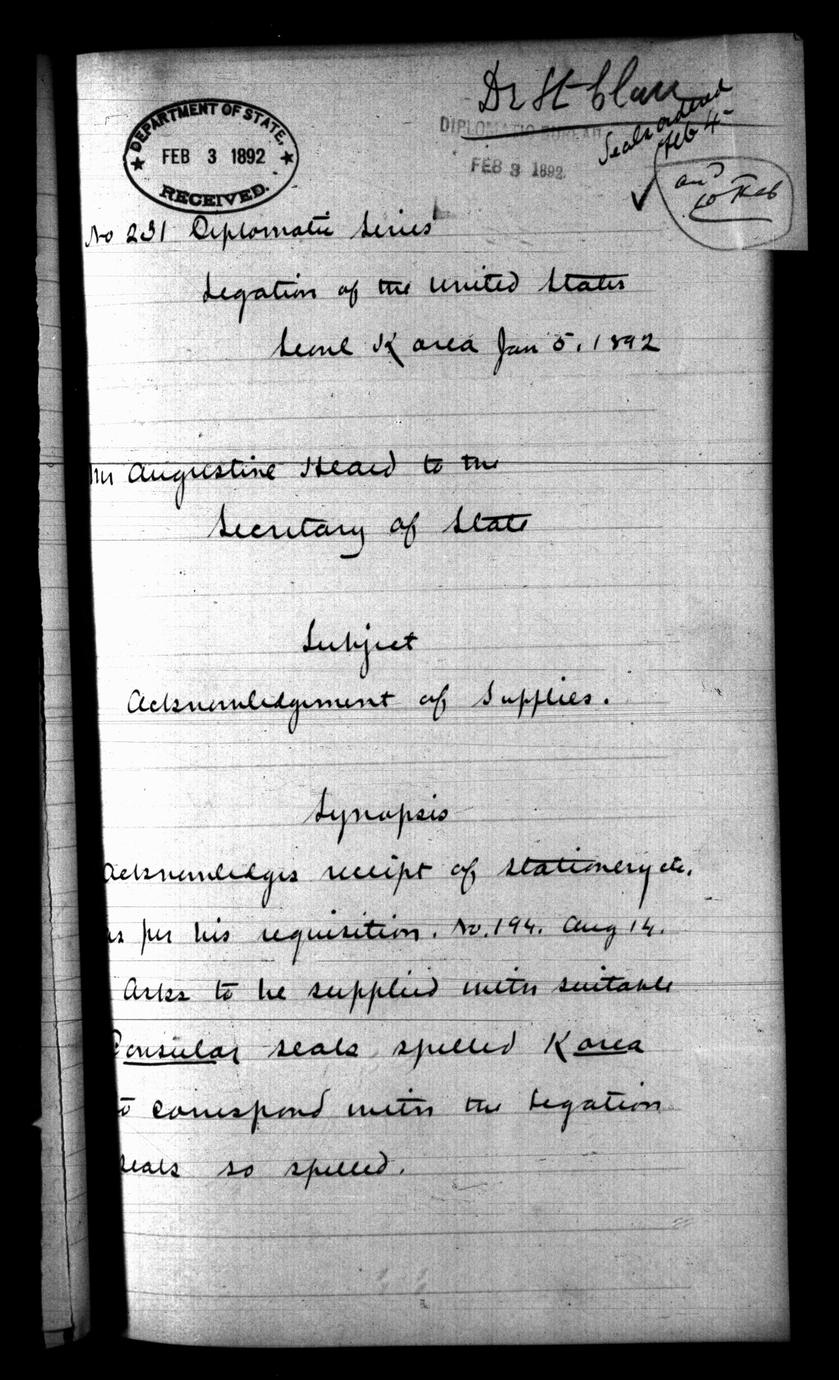 Dr St Clair
DEPARTMENT OF STATE,
FEB 3 1892
RECEIVED.
DIPLOMATIC BUREAU
FEB 3 1892
Seals ordered
Feb 4
and
10 Feb
No 231 Diplomatic Series
Legation of the United States
Seoul Korea Jan 5, 1892
Mr Augustine Heard to the
Secretary of State
Subject
Acknowledgement of Supplies.
Synopsis
Acknowledges receipt of stationery etc.
as per his requisition. No. 194. Aug 14.
Asks to be supplied with suitable
Consular seals spelled Korea
to correspond with the Legation
seals so spelled.